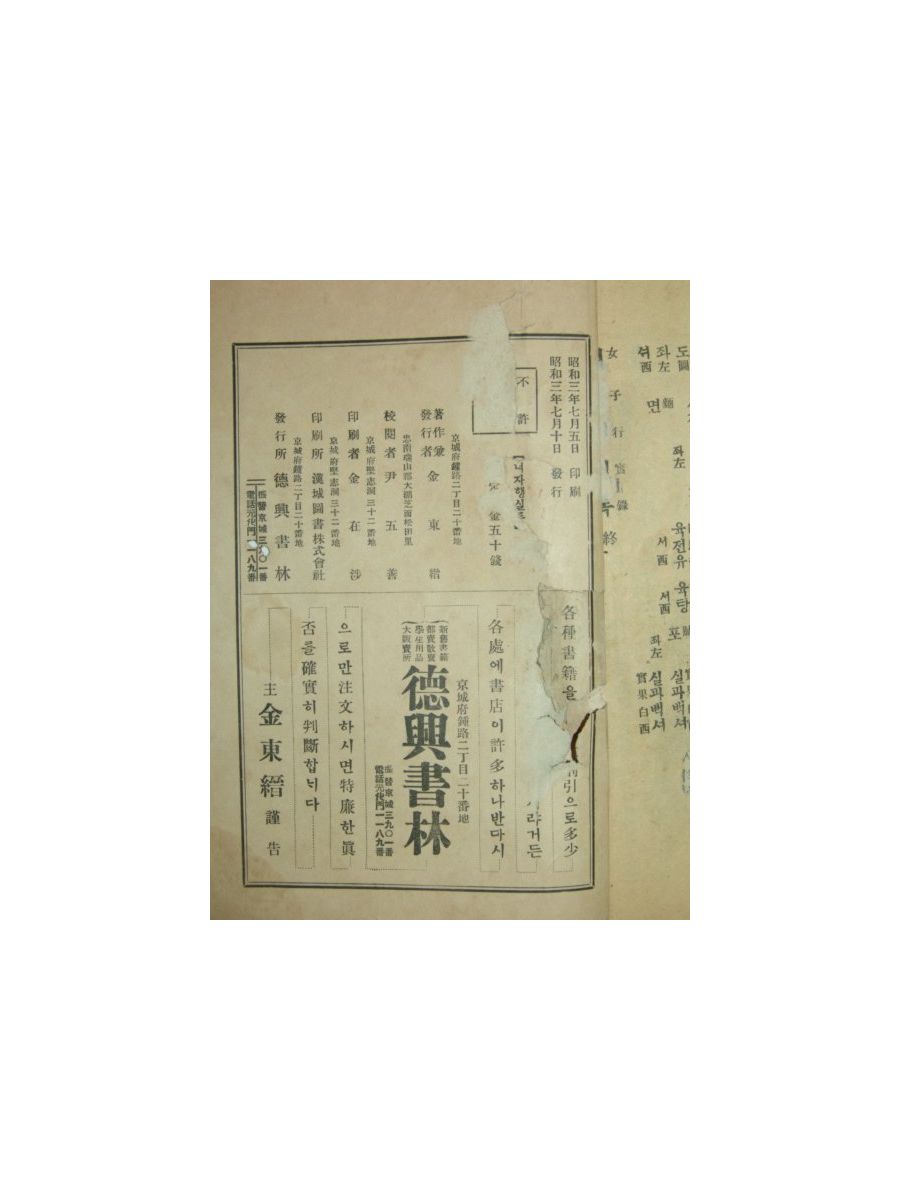 도圖
좌左
셔西
麵
면
좌左
육젼유
서西
육탕
서西
포
좌左
실과백셔
實果白西
女子行實錄 終
昭和三年七月五日 印刷
昭和三年七月十日 發行
不許
녀자행실록
金五十錢
京城府鍾路二丁目二十番地
著作兼發行者 金東縉
忠南瑞山郡大湖芝面松田里
校閱者 尹五善
京城府堅志洞三十二番地
印刷者 金在涉
京城府堅志洞三十二番地
印刷所 漢城圖書株式會社
京城府鍾路二丁目二十番地
發行所 德興書林
振替京城三九〇一番
電話光化門一一八九番
各種書籍을
引으로多少
거든
各處에書店이許多하나반다시
京城府鍾路二丁目二十番地
新舊書籍
都賣散賣
學生用品
大販賣所
德興書林
振替京城三九〇一番
電話光化門一一八九番
으로만注文하시면特廉한眞
否를確實히判斷합늬다
主 金東縉 謹告